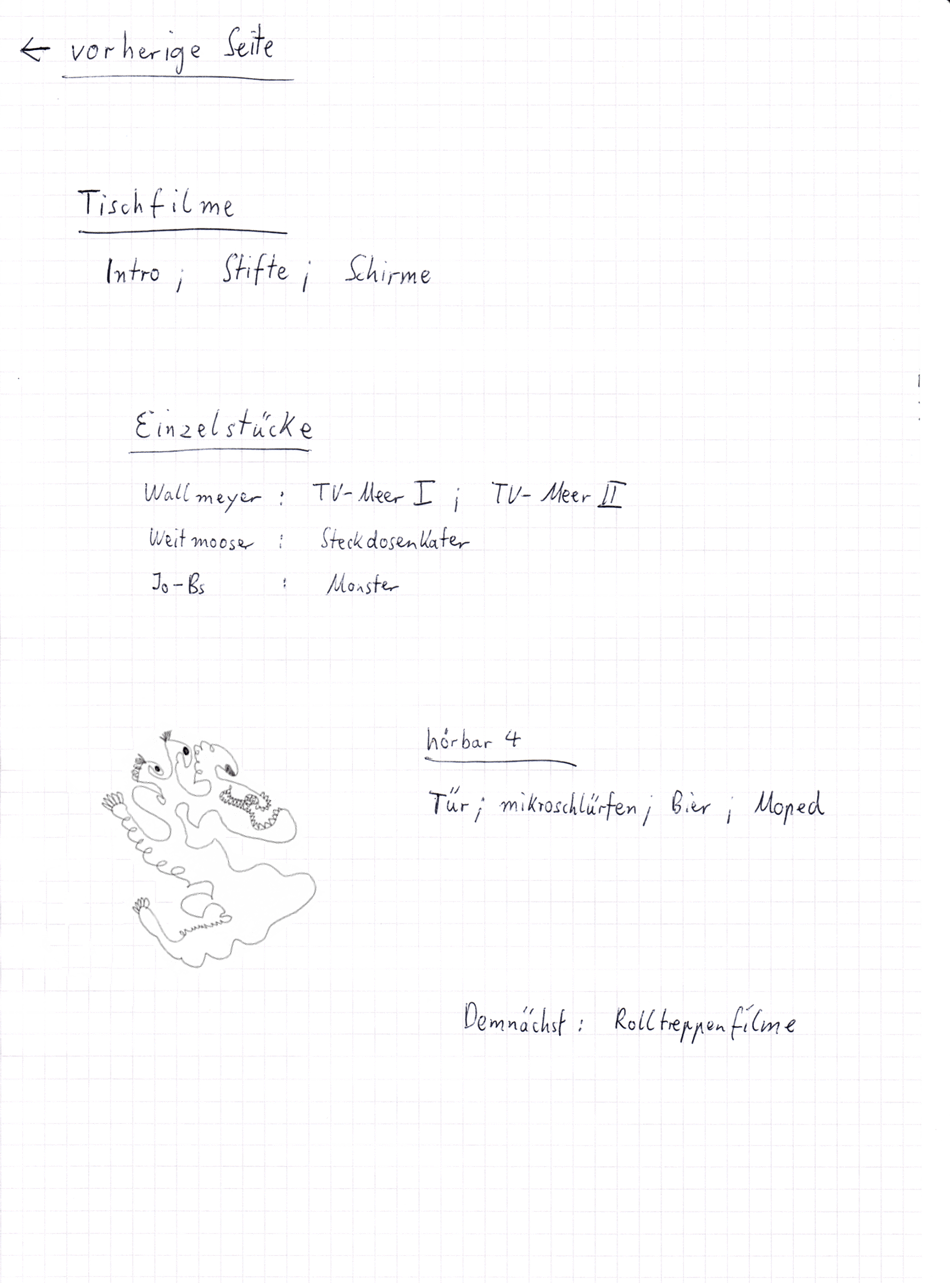 ← vorherige Seite
Tischfilme
Intro ; Stifte ; Schirme
Einzelstücke
Wallmeyer : TV-Meer I ; TV-Meer II
Weitmooser : Steckdosenkater
Jo-Bs : Monster
hörbar 4
Tür ; mikroschlürfen ; Bier ; Moped
Demnächst : Rolltreppenfilme